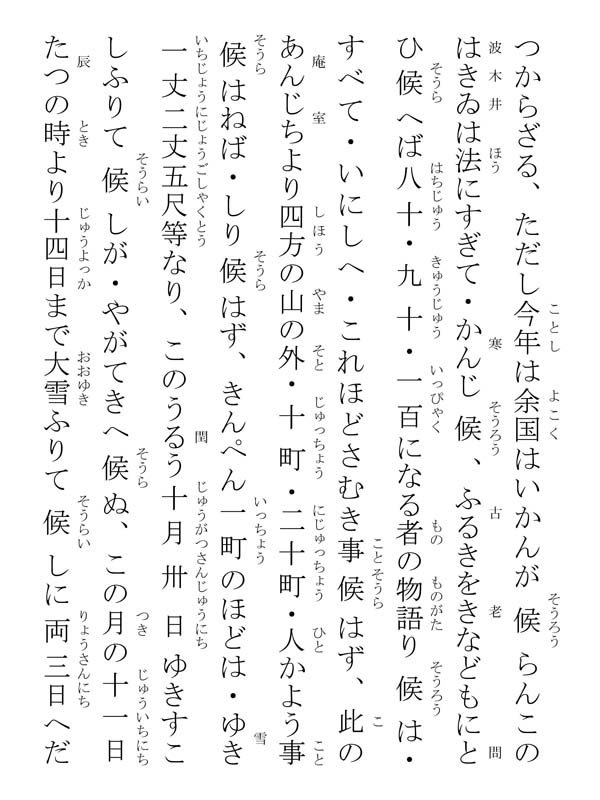 つからざる、ただし今年は余国はいかんが候らんこの
はきゐは法にすぎて・かんじ候、ふるきをきなどもにと
ひ候へば八十・九十・一百になる者の物語り候は・
すべて・いにしへ・これほどさむき事候はず、此の
あんじちより四方の山の外・十町・二十町・人かよう事
候はねば・しり候はず、きんぺん一町のほどは・ゆき
一丈二丈五尺等なり、このうるう十月卅日ゆきすこ
しふりて候しが・やがてきへ候ぬ、この月の十一日
たつの時より十四日まで大雪ふりて候しに両三日へだ